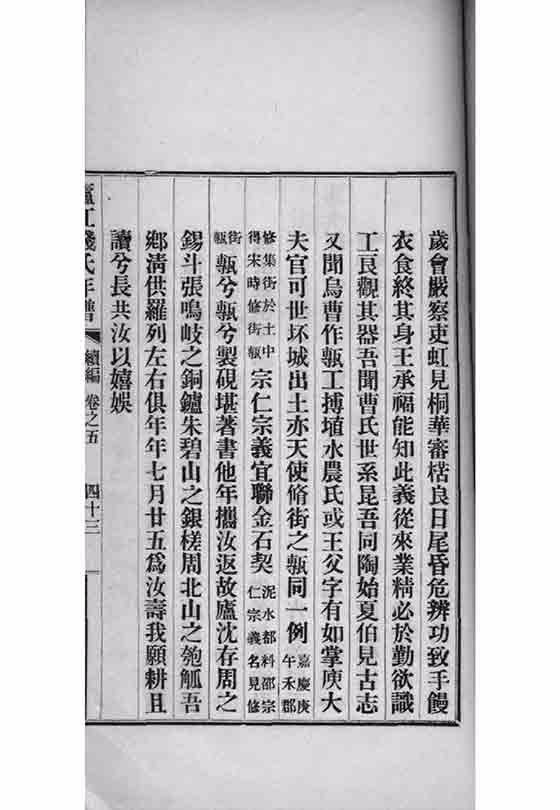 歲會嚴察吏虹見桐華審楛良日尾昏危辨功致手饅
衣食終其身王承福能知此義從來業精必於勤欲識
工良觀其器吾聞曹氏世系昆吾同陶始夏伯見古志
又聞烏曹作甎工搏埴水農氏或王父字有如掌庾大
夫官可世坏城出土亦天使脩街之甎同一例嘉慶庚午禾郡
修集街於土中得宋時修街甎宗仁宗義宜聯金石契泥水都料邵宗仁宗義名見修
街甎甎兮甎兮製硯堪著書他年攜汝返故廬沈存周之
錫斗張鳴岐之銅鑪朱碧山之銀槎周北山之匏觚吾
鄉清供羅列左右俱年年七月廿五爲汝壽我願耕且
讀兮長共汝以嬉娛
廬江錢氏年譜 續編 卷之五 四十三